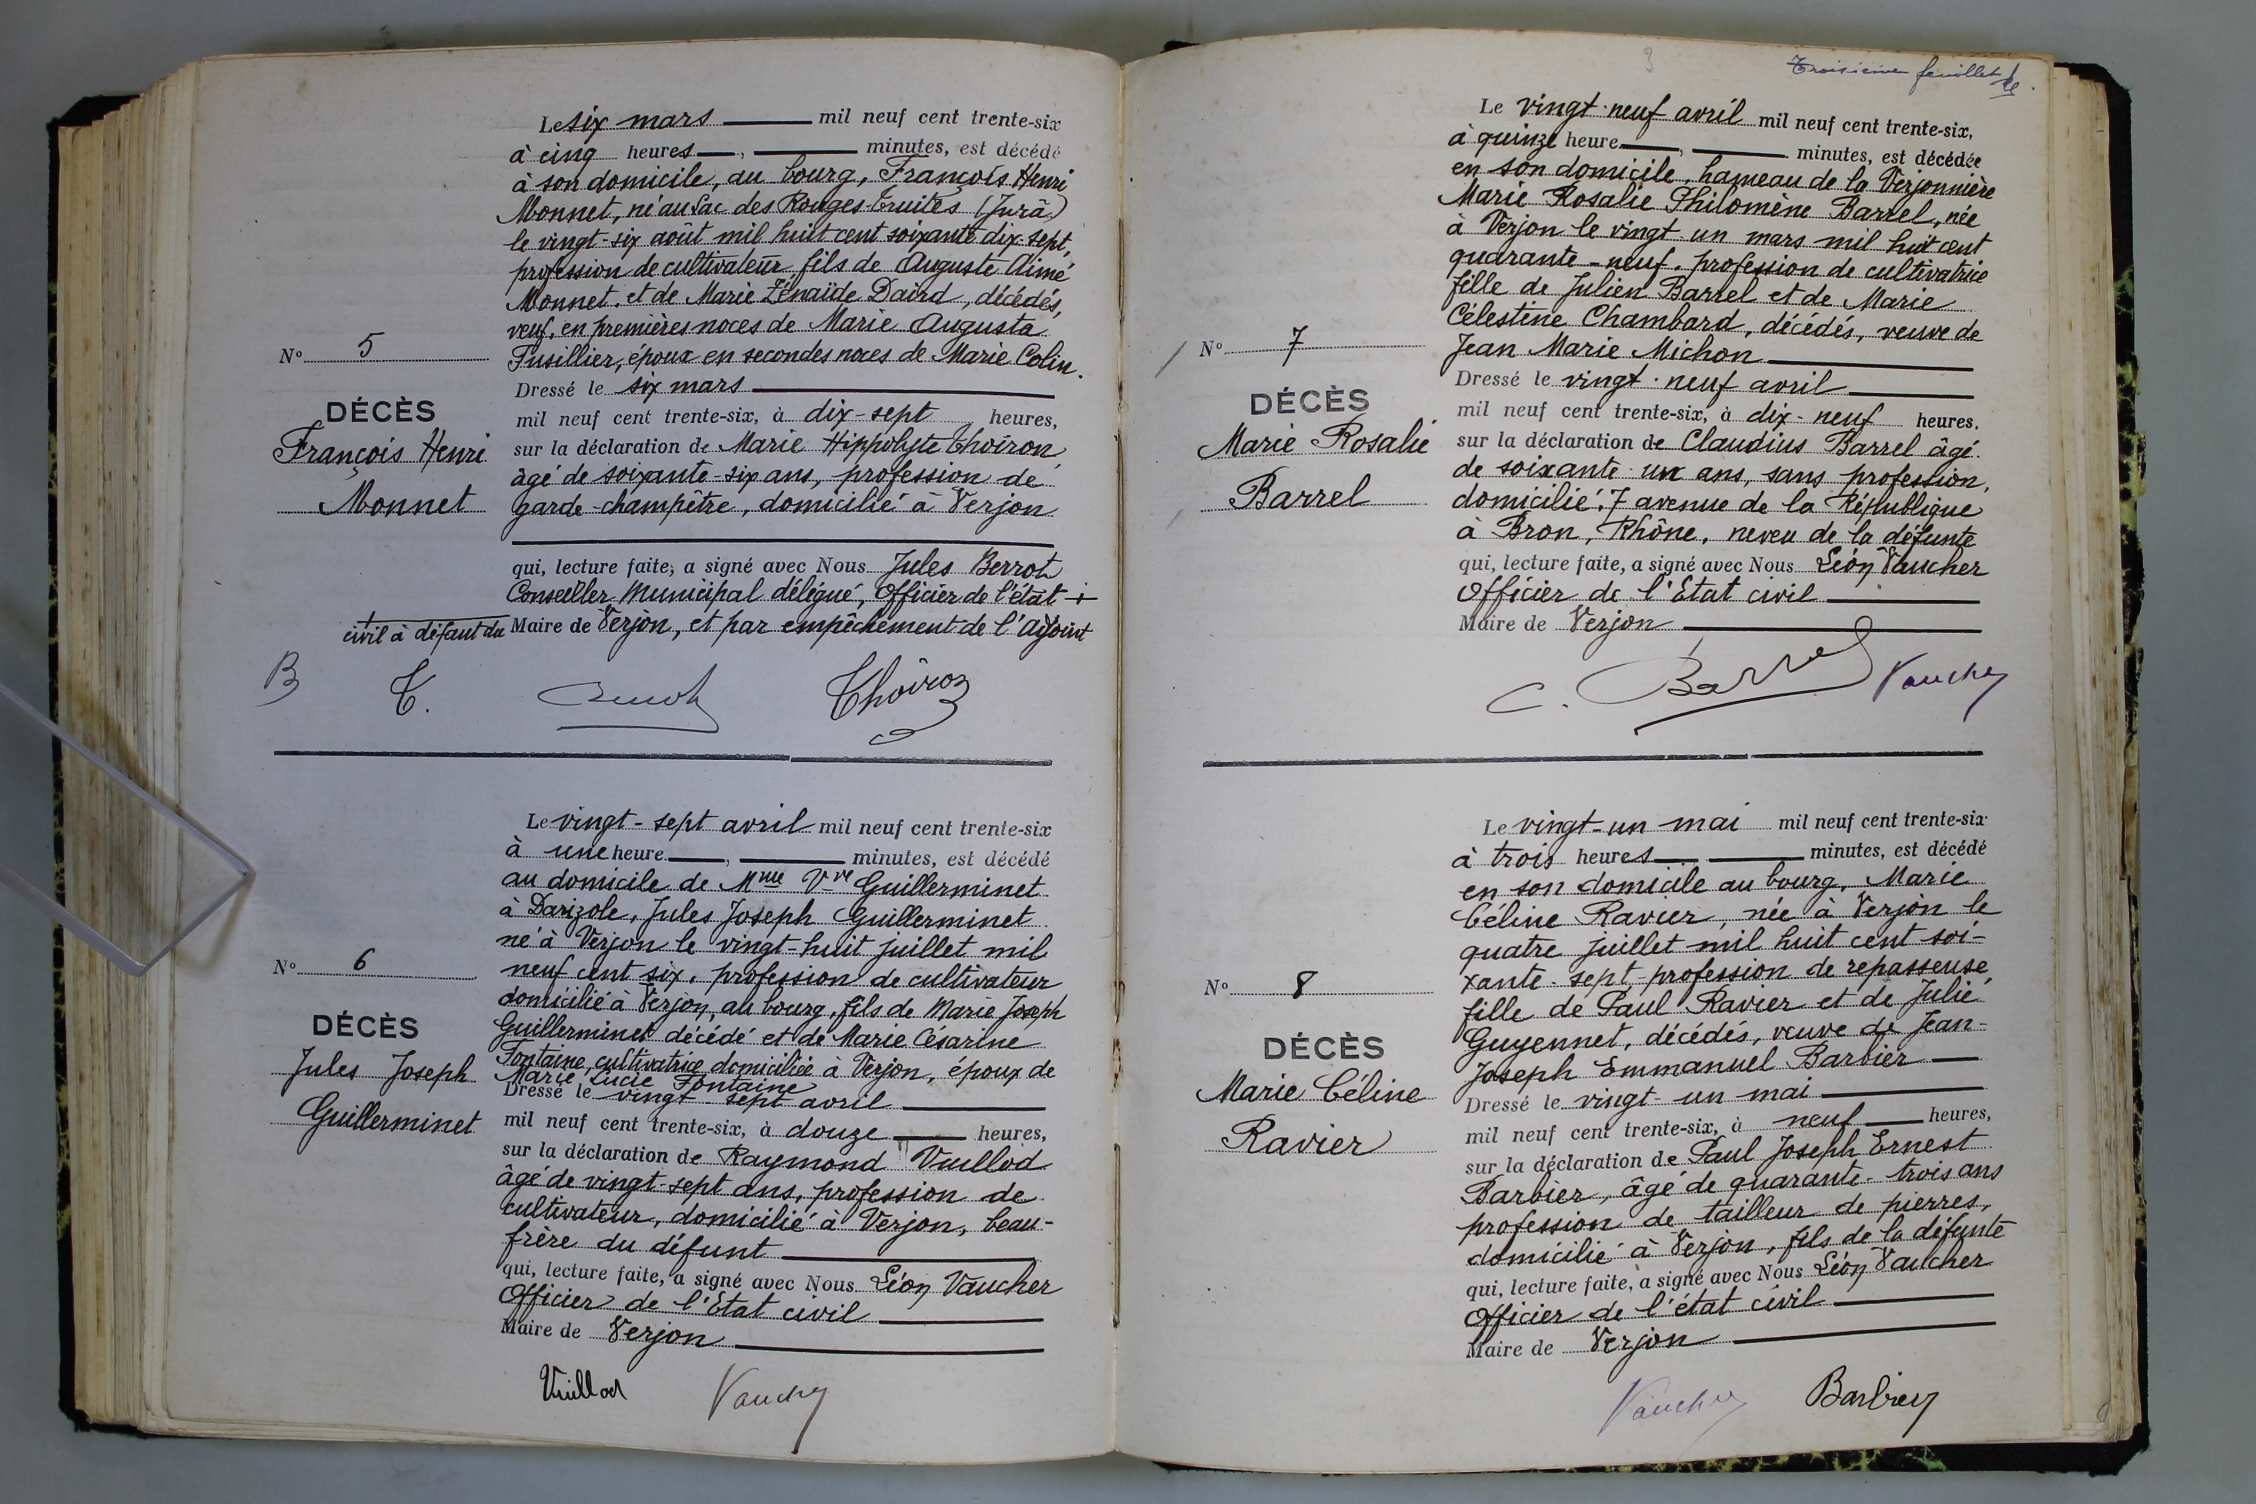 Le six mars mil neuf cent trente-six
à cinq heures , minutes, est décédé
à son domicile, au bourg, François Henri
Monnet, né au Lac des Rouges-Truites (Jura)
le vingt-six août mil huit cent soixante dix-sept,
profession de cultivateur fils de Auguste Aimé
Monnet, et de Marie Zénaïde Daird, décédés,
veuf, en premières noces de Marie Augusta
Fusillier, époux en secondes noces de Marie Colin.
Dressé le six mars
mil neuf cent trente-six, à dix-sept heures,
sur la déclaration de Marie Hippolyte Thoiron,
âgé de soixante-six ans, profession de
garde-champêtre, domicilié à Verjon
qui, lecture faite, a signé avec Nous Jules Berrot
Conseiller Municipal délégué, Officier de l'état +
+ civil à défaut du Maire de Verjon, et par empêchement de l'Adjoint
N° 5
DÉCÈS
François Henri
Monnet
B T. Berrot Thoiron
Le vingt-sept avril mil neuf cent trente-six
à une heure , minutes, est décédé
au domicile de Mme Vve Guillerminet
à Darizole, Jules Joseph Guillerminet
né à Verjon le vingt-huit juillet mil
neuf cent six, profession de cultivateur
domicilié à Verjon, au bourg, fils de Marie Joseph
Guillerminet décédé et de Marie Césarine
Fontaine, cultivatrice domiciliée à Verjon, époux de
Marie Lucie Fontaine
Dressé le vingt-sept avril
mil neuf cent trente-six, à douze heures,
sur la déclaration de Raymond Vuillod
âgé de vingt-sept ans, profession de
cultivateur, domicilié à Verjon, beau-
frère du défunt
qui, lecture faite, a signé avec Nous Léon Vaucher
Officier de l'Etat civil
Maire de Verjon
N° 6
DÉCÈS
Jules Joseph
Guillerminet
Vuillod Vaucher
3
Troisième feuillet
Le vingt-neuf avril mil neuf cent trente-six,
à quinze heure , minutes, est décédée
en son domicile, hameau de la Verjonnière
Marie Rosalie Philomène Barrel, née
à Verjon le vingt-un mars mil huit cent
quarante-neuf, profession de cultivatrice
fille de Julien Barrel et de Marie
Célestine Chambard, décédés, veuve de
Jean Marie Michon
Dressé le vingt-neuf avril
mil neuf cent trente-six, à dix-neuf heures.
sur la déclaration de Claudius Barrel âgé
de soixante un ans, sans profession,
domicilié, 7 avenue de la République
à Bron, Rhône, neveu de la défunte
qui, lecture faite, a signé avec Nous Léon Vaucher
Officier de l'Etat civil
Maire de Verjon
N° 7
DÉCÈS
Marie Rosalie
Barrel
C. Barrel Vaucher
Le vingt-un mai mil neuf cent trente-six
à trois heures , minutes, est décédé
en son domicile au bourg, Marie
Céline Ravier, née à Verjon le
quatre juillet mil huit cent soi-
xante-sept, profession de repasseuse,
fille de Paul Ravier et de Julie
Guyennet, décédés, veuve de Jean-
Joseph Emmanuel Barbier
Dressé le vingt-un mai
mil neuf cent trente-six, à neuf heures,
sur la déclaration de Paul Joseph Ernest
Barbier, âgé de quarante-trois ans
profession de tailleur de pierres,
domicilié à Verjon, fils de la défunte
qui, lecture faite, a signé avec Nous Léon Vaucher
Officier de l'état civil
Maire de Verjon
N° 8
DÉCÈS
Marie Céline
Ravier
Vaucher Barbier